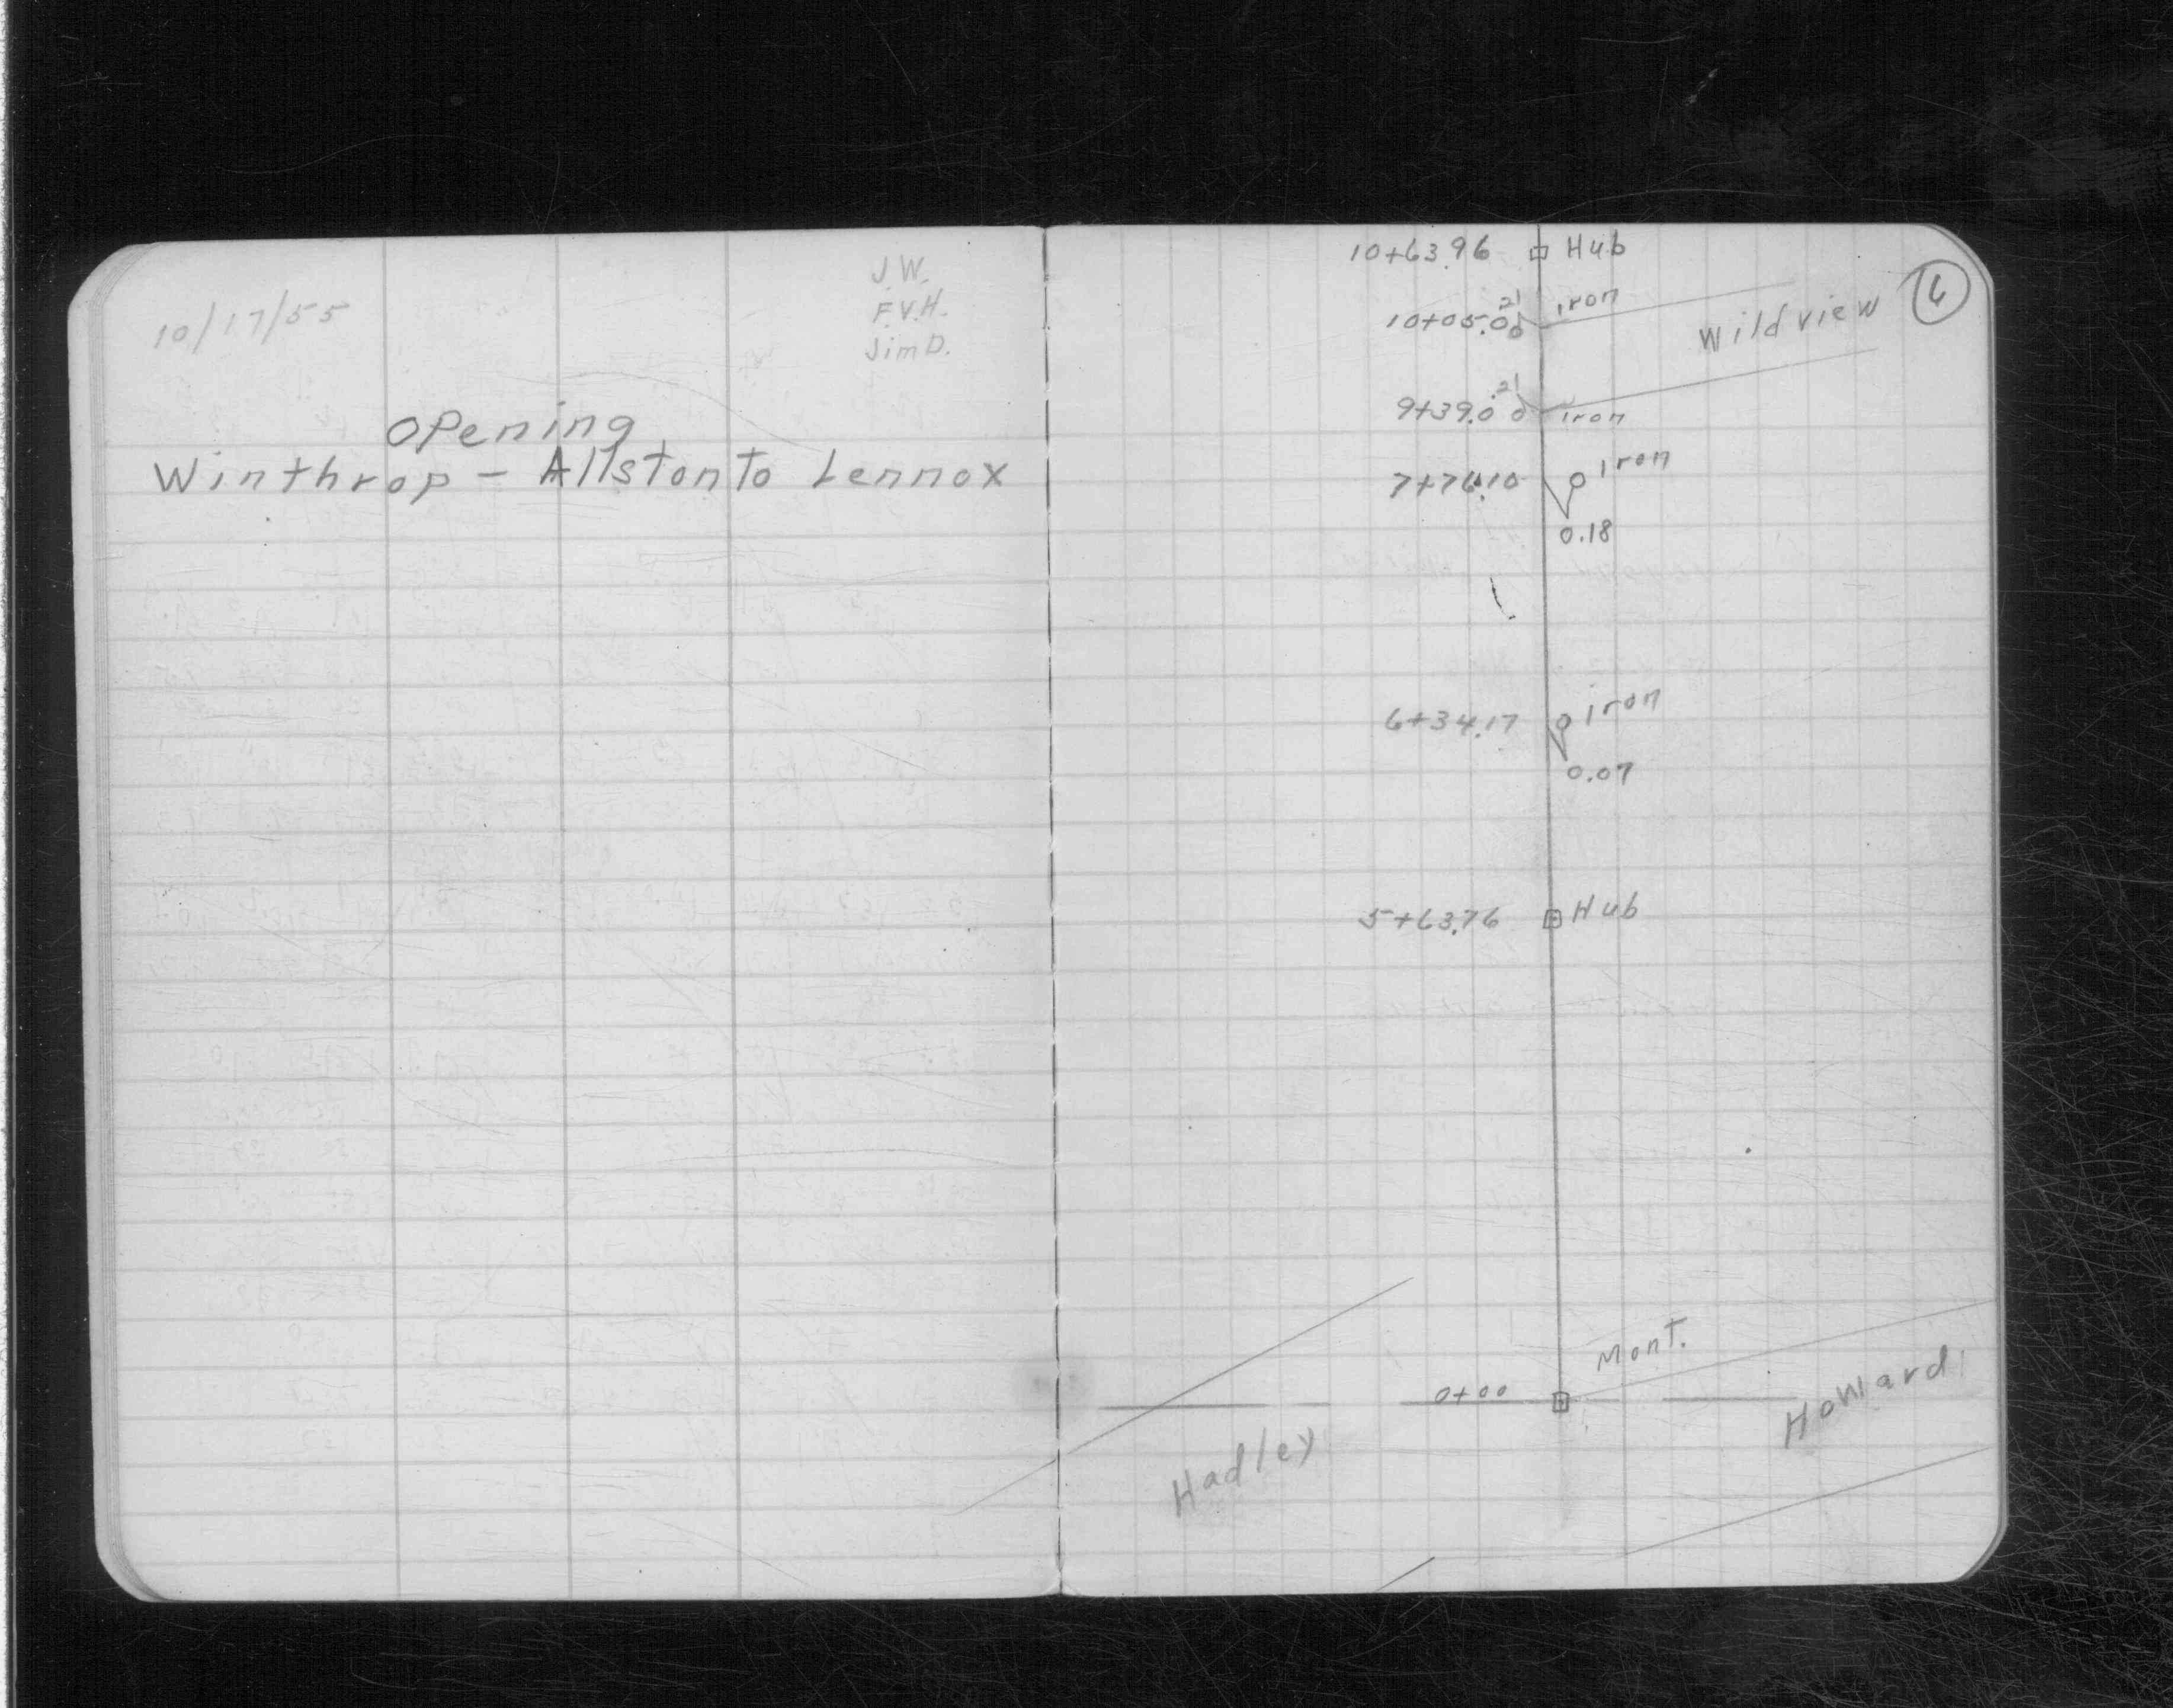 10/17/55
J.W.
F.V.H.
Jim D.
Opening
Winthrop - Allston to Lennox
6
10+63.96 Hub
.21 iron
10+05.0
Wildview
.21
9+39.0 iron
7+76.10 iron
0.18
6+34.17 iron
0.07
5+63.76 Hub
Mont.
0+00
Howard
Hadley